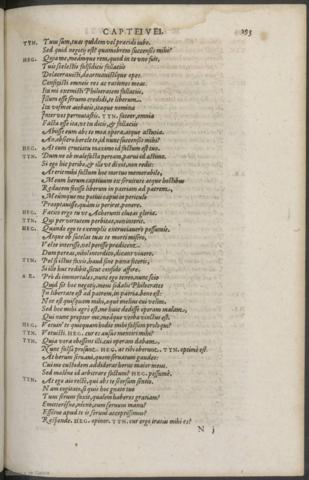 CAPTEIVEI. 193
TYN. Tuus sum, tuas quidem vel præcidi iube.
Sed quid negoti est? quamobrem succenses mihi?
HEG. Quia me, meamque rem, quod in te uno fuit,
Tuis scelestis falsidicis fallaciis
Delaceravisti, deartuavistique opes.
Confecisti omneis res ac rationes meas.
Ita mi exemisti Philocratem fallaciis,
Illum esse servum credidi, te liberum.
Ita vosmet aiebatis, itaque nomina
Inter vos permutastis. TYN. fateor, omnia
Facta esse ita, ut tu dicis, & fallaciis
Abiisse eum abs te mea opera, atque astutia.
An obsecro hercle te, id nunc succenses mihi?
HEG. At cum cruciatu maxumo id factum est tuo.
TYN. Dum ne ob malefacta peream, parvi id æstimo.
Si ego hic peribo, & ille ut dixit, non redit:
At erit mihi factum hoc mortuo memorabile,
Meum herum captivum ex servitute atque hostibus
Reducem fecisse liberum in patriam ad patrem,
Meumque me potius caput in periculo
Præoptavisse, quàm is periret, ponere.
HEG. Facito ergo tu ut Acherunti clueas gloria.
TYN. Qui per virtutem perbitat, non interit.
HEG. Quando ego te exemplis excruciavero pessumis,
Atque ob sutelas tuas te morti misero,
Vel te interiisse, vel periisse prædicent.
Dum pereas, nihil interdico, dicant vivere.
TYN. Pol si istuc faxis, haud sine pœna feceris,
Si ille huc redibit, sicut confido affore.
AR. Prò di immortales, nunc ego teneo, nunc scio
Quid sit hoc negoti, meus sodalis Philocrates
In libertate est ad patrem, in patria, bene est:
Nec est quisquam mihi, aequè melius cui velim.
Sed hoc mihi ægrè est, me huic dedisse operam malam,
Qui nunc propter me, meaque verba vinctus est.
HEG. Vetui'n te quicquam hodie mihi falsum proloqui?
TYN. Vetuisti. HEG. cur es ausus mentiri mihi?
TYN. Quia vera obessent illi, cui operam dabam.
Nunc falsa prosunt. HEG. at tibi oberunt. TYN. optimè est.
At herum servavi, quem servatum gaudeo:
Cui me custodem addiderat herus maior meus.
Sed malène id arbitrare factum? HEG. pessumè.
TYN. At ego aio rectè, qui abs te seorsum sentio.
Nam cogitato, si quis hoc gnato tuo
Tuus servus faxit, qualem haberes gratiam?
Emitteresne, necne, eum servum manu?
Essetne apud te is servus acceptissimus?
Responde. HEG. opinor. TYN. cur ergo iratus mihi es?
N j